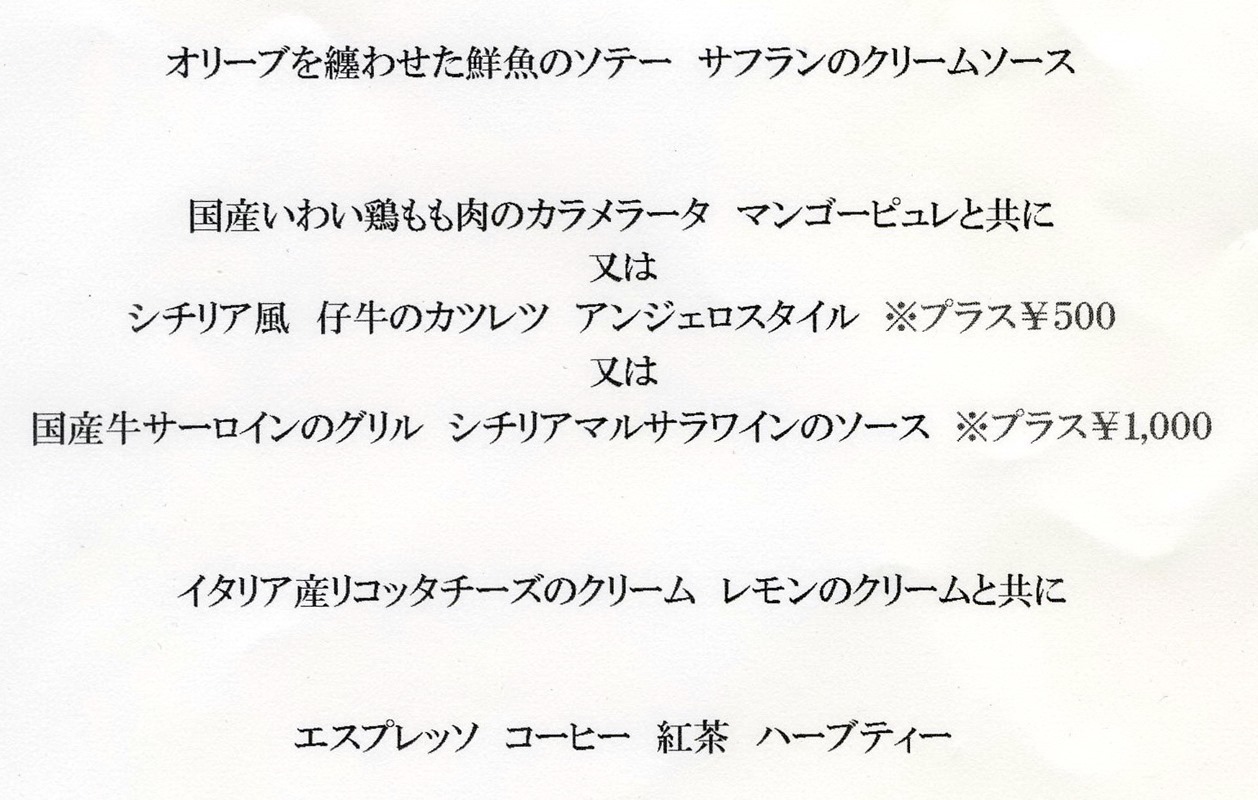 オリーブを纏わせた鮮魚のソテー　サフランのクリームソース
国産いわい鶏もも肉のカラメラータ　マンゴーピュレと共に
又は
シチリア風　仔牛のカツレツ　アンジェロスタイル　※プラス￥500
又は
国産牛サーロインのグリル　シチリアマルサラワインのソース　※プラス￥1,000
イタリア産リコッタチーズのクリーム　レモンのクリームと共に
エスプレッソ　コーヒー　紅茶　ハーブティー